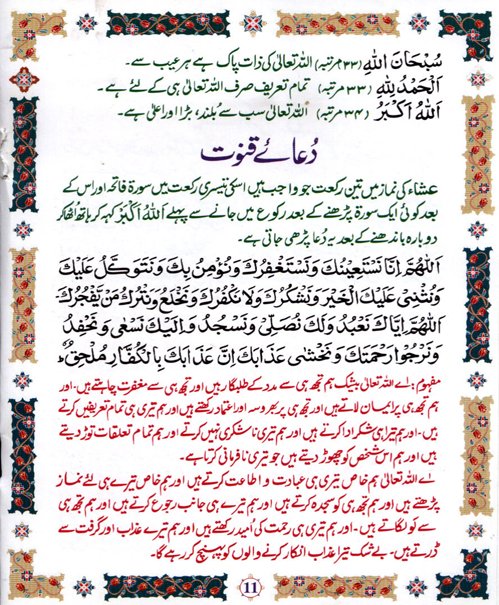 سُبْحَانَ اللهِ (۳۳ مرتبہ) اللہ تعالیٰ کی ذات پاک ہے ہر عیب سے۔
اَلْحَمْدُ لِلّٰهِ (۳۳ مرتبہ) تمام تعریف صرف اللہ تعالیٰ ہی کے لئے ہے۔
اَللهُ اَكْبَرُ (۳۴ مرتبہ) اللہ تعالیٰ سب سے بُلند، بڑا اور اعلیٰ ہے۔
دُعائے قنوت
عشاء کی نماز میں تین رکعت جو واجب ہیں اسکی تیسری رکعت میں سورۃ فاتحہ اور اس کے
بعد کوئی ایک سورۃ پڑھنے کے بعد رکوع میں جانے سے پہلے اَللهُ اَكْبَرُ کہہ کر ہاتھ اُٹھا کر
دوبارہ باندھنے کے بعد یہ دُعا پڑھی جاتی ہے۔
اَللّٰهُمَّ اِنَّا نَسْتَعِيْنُكَ وَنَسْتَغْفِرُكَ وَنُؤْمِنُ بِكَ وَنَتَوَكَّلُ عَلَيْكَ
وَنُثْنِىْ عَلَيْكَ الْخَيْرَ وَنَشْكُرُكَ وَلَا نَكْفُرُكَ وَنَخْلَعُ وَنَتْرُكُ مَنْ يَّفْجُرُكَ
اَللّٰهُمَّ اِيَّاكَ نَعْبُدُ وَلَكَ نُصَلِّىْ وَنَسْجُدُ وَاِلَيْكَ نَسْعٰى وَنَحْفِدُ
وَنَرْجُوْا رَحْمَتَكَ وَنَخْشٰى عَذَابَكَ اِنَّ عَذَابَكَ بِالْكُفَّارِ مُلْحِقٌ
مفہوم: اے اللہ تعالیٰ بیشک ہم تجھ ہی سے مدد کے طلبگار ہیں اور تجھ ہی سے مغفرت چاہتے ہیں۔ اور
ہم تجھ ہی پر ایمان لاتے ہیں اور تجھ ہی پر بھروسہ اور اعتماد رکھتے ہیں اور ہم تیری ہی تمام تعریفیں کرتے
ہیں۔ اور ہم تیرا ہی شکر ادا کرتے ہیں اور ہم تیری ناشکری نہیں کرتے اور ہم تمام تعلقات توڑ دیتے
ہیں اور ہم اس شخص کو چھوڑ دیتے ہیں جو تیری نافرمانی کرتا ہے۔
اے اللہ تعالیٰ ہم خاص تیری ہی عبادت و اطاعت کرتے ہیں اور ہم خاص تیرے ہی لئے نماز
پڑھتے ہیں اور ہم تجھ ہی کو سجدہ کرتے ہیں اور ہم تیرے ہی جانب رجوع کرتے ہیں اور ہم تجھ ہی
سے لو لگاتے ہیں۔ اور ہم تیری ہی رحمت کی اُمید رکھتے ہیں اور ہم تیرے عذاب اور گرفت سے
ڈرتے ہیں۔ بے شک تیرا عذاب انکار کرنے والوں کو پہنچ کر رہے گا۔
11